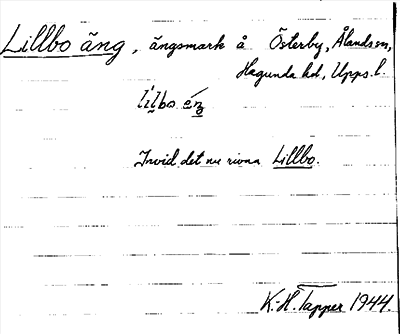 Lillbo äng, ängsmark å Österby, Ålands sn,
Hagunda hd, Upps. l.
lilbo äŋ
Invid det nu rivna Lillbo.
K.-H. Tapper 1944.